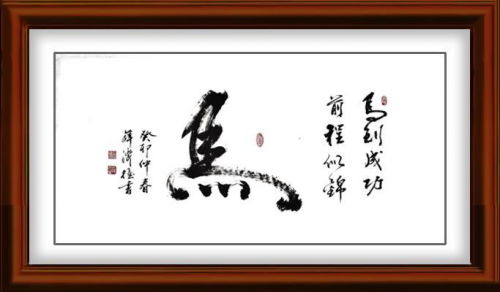 馬到成功
前程似錦
馬
癸卯仲春